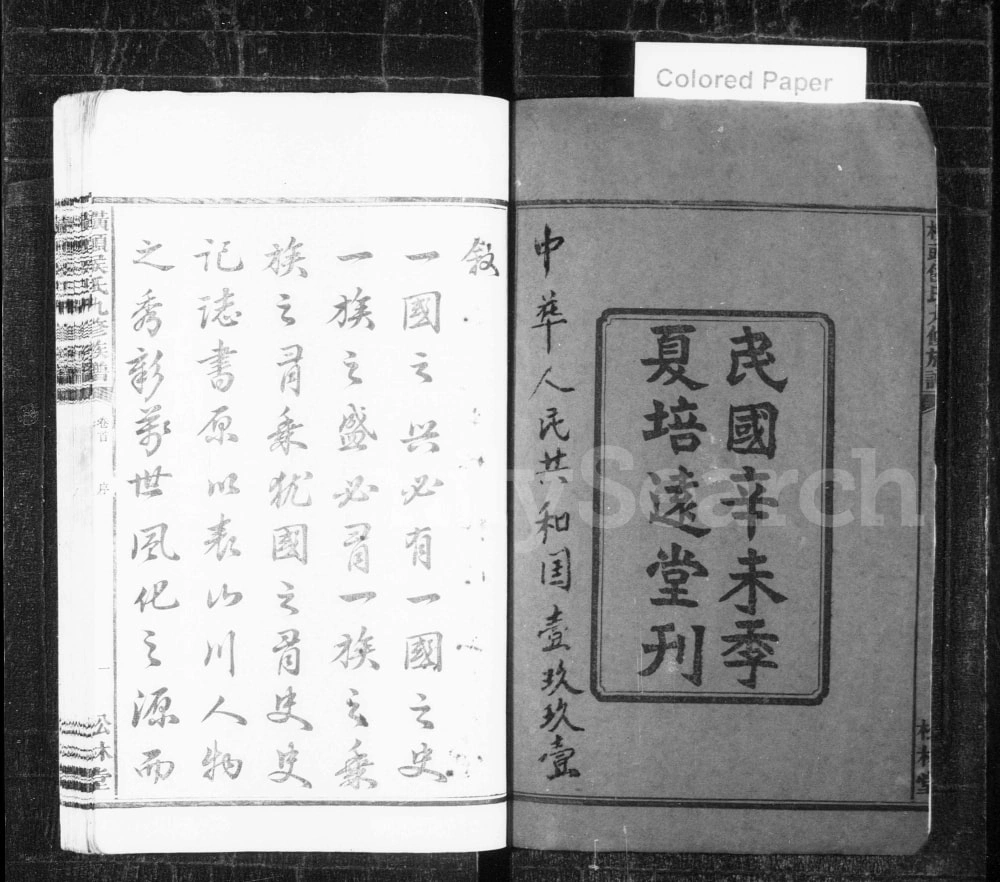 Colored Paper
民國辛未季
夏培遠堂刊
中華人民共和国壹玖玖壹
敘
一國之兴必有一國之史
一族之盛必有一族之乘
族之有乘犹國之有史史
记誌書原以表山川人物
之秀彰萬世風化之源而
氏九修族譜
卷首
序
一
公林堂
mySearch